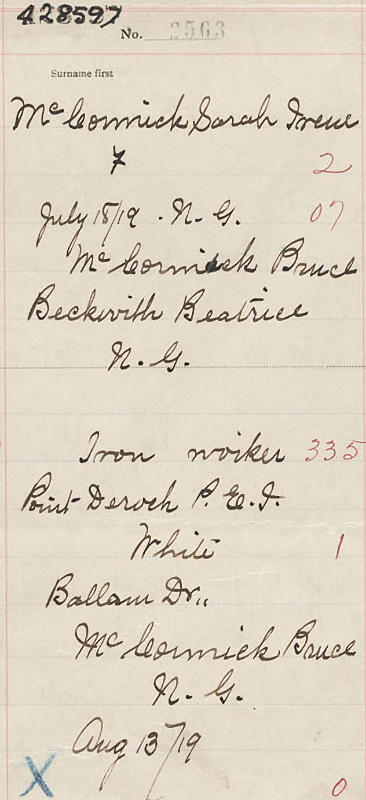 428597
No. 3563
Surname first
McCormick Sarah Irene
7 2
July 18/19 . N. G. 07
McCormick Bruce
Beckwith Beatrice
N. G.
Iron worker 335
Point Deroch P. E. I.
White 1
Ballam Dr.,
McCormick Bruce
N. G.
Aug 13/19
X 0